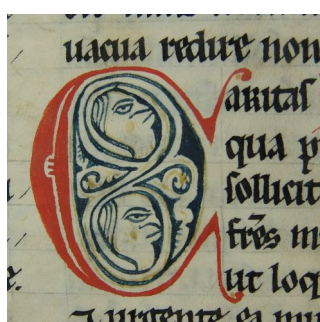 uacua redire non
Caritas
qua p
sollicit
fr̄es m
ut loq